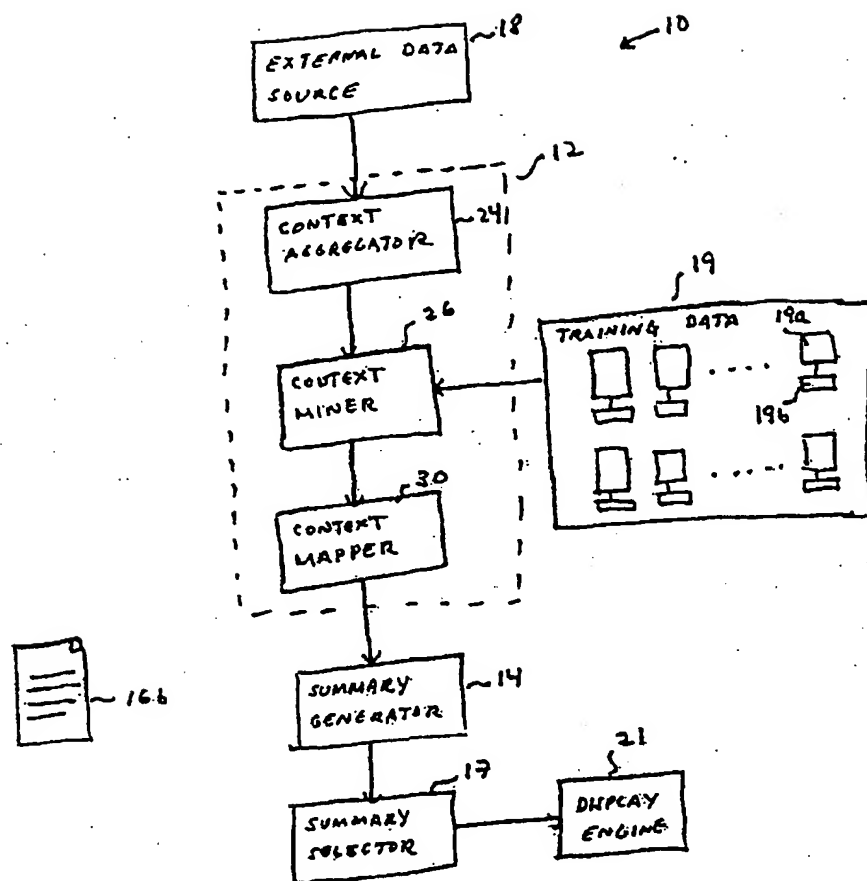 18
10
EXTERNAL DATA
SOURCE
12
CONTEXT
AGGREGATOR
24
19
TRAINING DATA
19a
19b
26
CONTEXT
MINER
30
CONTEXT
MAPPER
16b
SUMMARY
GENERATOR
14
17
SUMMARY
SELECTOR
21
DISPLAY
ENGINE